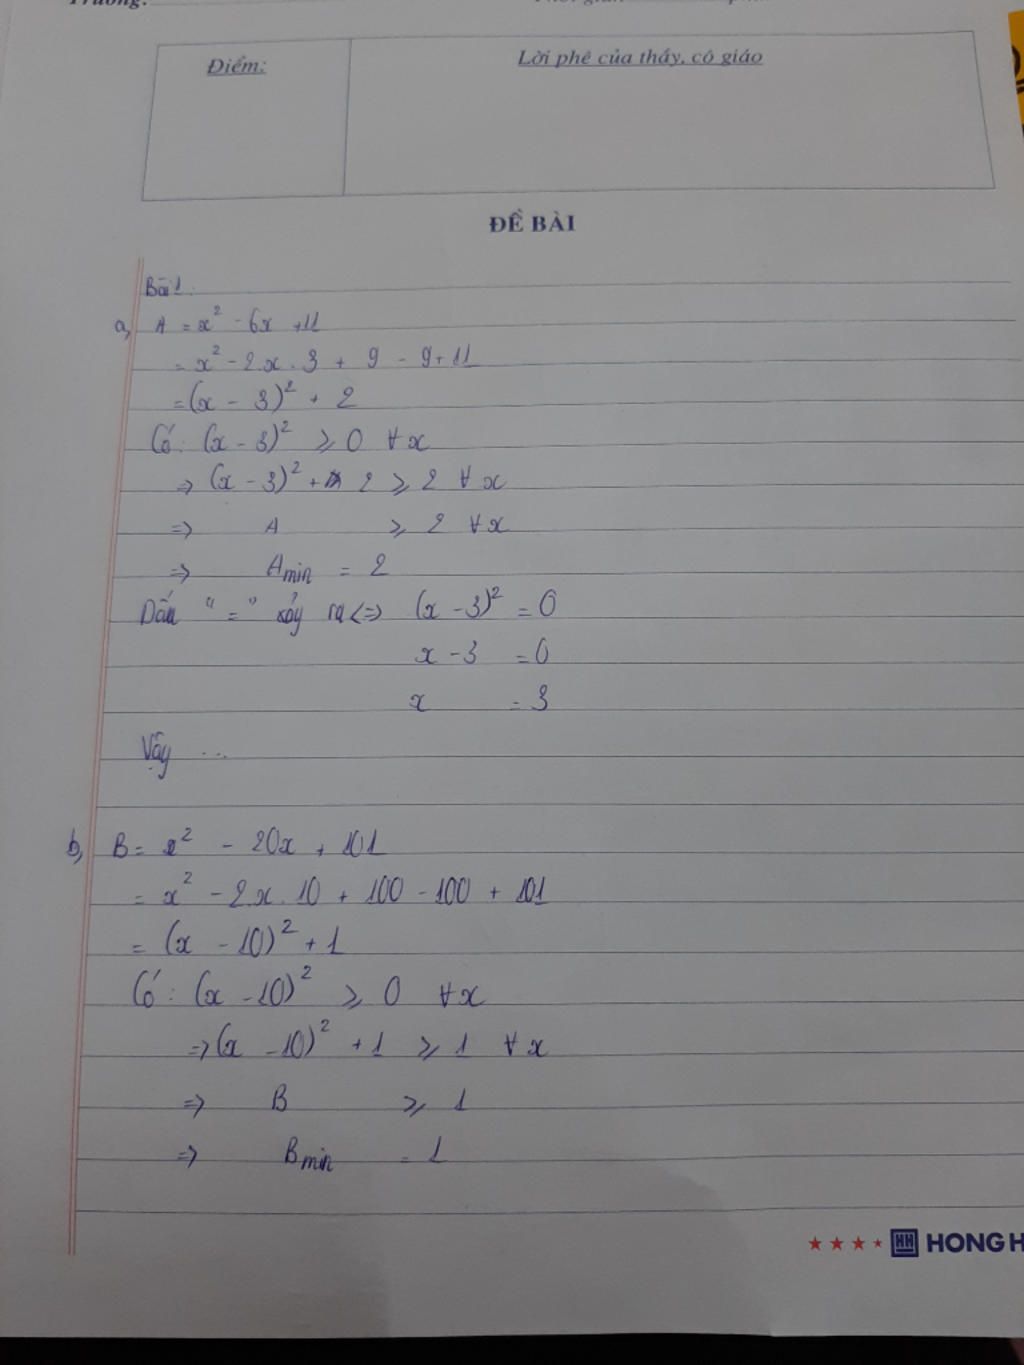 Trường:
Điểm:
Lời phê của thầy, cô giáo
ĐỀ BÀI
Bài 1:
a, A = x² - 6x + 11
= x² - 2x.3 + 9 - 9 + 11
= (x - 3)² + 2
Có: (x - 3)² ≥ 0 ∀x
⇒ (x - 3)² + 2 ≥ 2 ∀x
⇒ A ≥ 2 ∀x
⇒ Amin = 2
Dấu "=" xảy ra <=> (x - 3)² = 0
x - 3 = 0
x = 3
Vậy ...
b, B = x² - 20x + 101
= x² - 2x.10 + 100 - 100 + 101
= (x - 10)² + 1
Có: (x - 10)² ≥ 0 ∀x
⇒ (x - 10)² + 1 ≥ 1 ∀x
⇒ B ≥ 1
⇒ Bmin = 1
HH HONG H